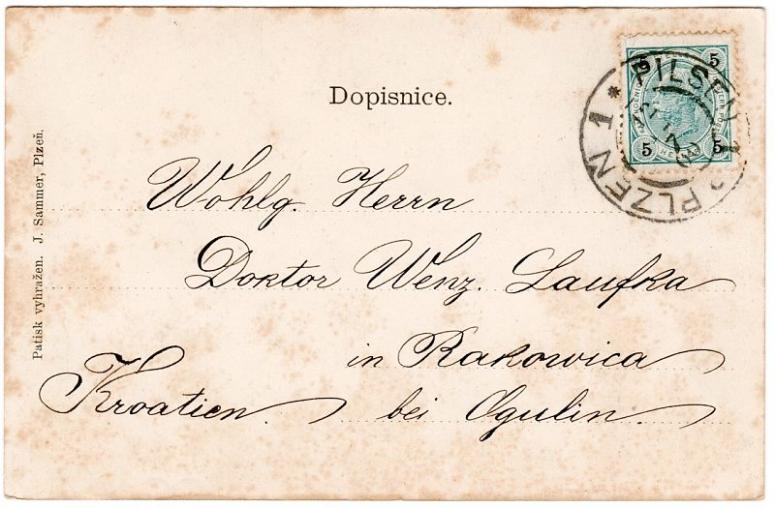 Dopisnice.
5 5
5 5
* PILSEN 1 * PLZEŇ 1
Patisk vyhražen. J. Sammer, Plzeň.
Wohlg. Herrn
Doktor Wenz. Laufka
in Rakowica
Kroatien. bei Ogulin.